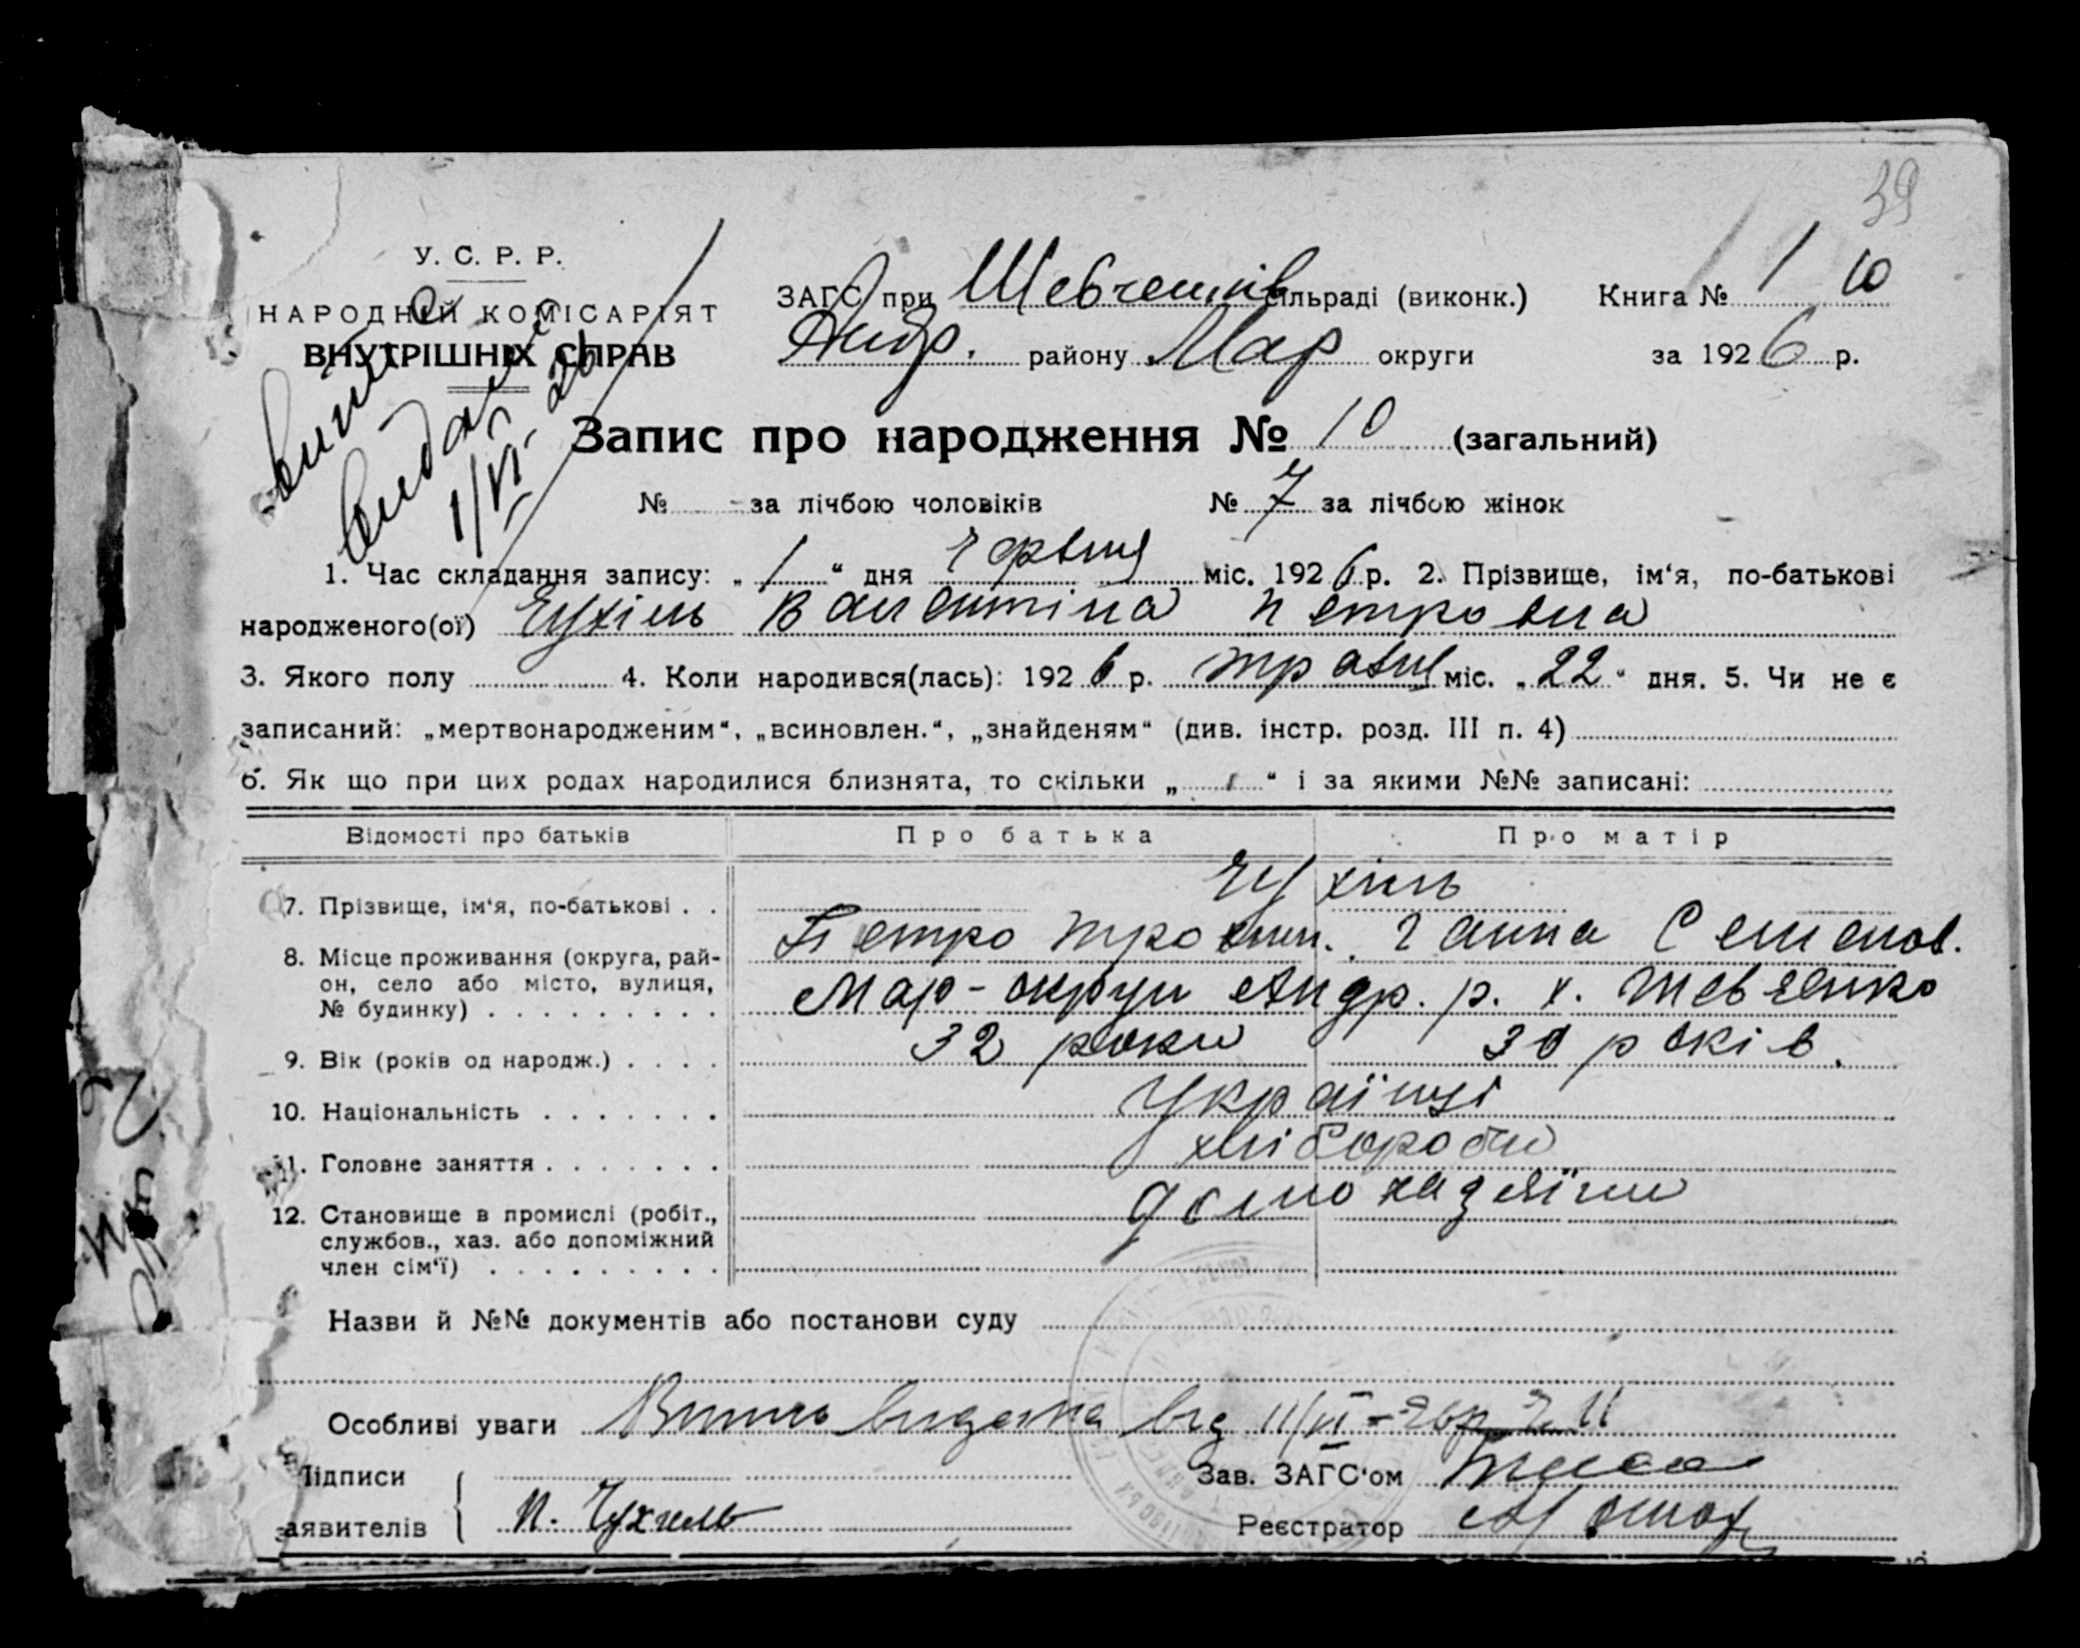 39
У. С. Р. Р.
НАРОДНІЙ КОМІСАРІЯТ
ВНУТРІШНІХ СПРАВ
видан
1/VI 26
ЗАГС при Шевченків сільраді (виконк.) Книга № 1 10
Андр. району Мар округи за 1926 р.
Запис про народження № 10 (загальний)
№ - за лічбою чоловіків № 7 за лічбою жінок
1. Час складання запису: „ 1 “ дня червня міс. 1926 р. 2. Прізвище, ім‘я, по-батькові
народженого(ої) Чухіль Валентіна Петровна
3. Якого полу 4. Коли народився(лась): 1926 р. травня міс. „ 22 “ дня. 5. Чи не є
записаний: „мертвонародженим“, „всиновлен.“, „знайденям“ (див. інстр. розд. III п. 4)
6. Як що при цих родах народилися близнята, то скільки „ “ і за якими №№ записані:
Відомості про батьків Про батька Про матір
Чухіль
7. Прізвище, ім‘я, по-батькові . .
Петро Ганна Семенов.
8. Місце проживання (округа, рай-
он, село або місто, вулиця,
№ будинку) . . . . . . . . .
Мар-округи Андр. р. х. Шевченко
9. Вік (років од народж.) . . . . 32 роки 30 років.
10. Національність . . . . . . . Українці
11. Головне заняття . . . . . . . хлібороби
12. Становище в промислі (робіт.,
службов., хаз. або допоміжний
член сім‘ї) . . . . . . . . .
домохазяїни
Назви й №№ документів або постанови суду
Особливі уваги Випис видана від 11/VI-26р № 11
Підписи Зав. ЗАГС‘ом
заявителів П. Чухиль Реєстратор